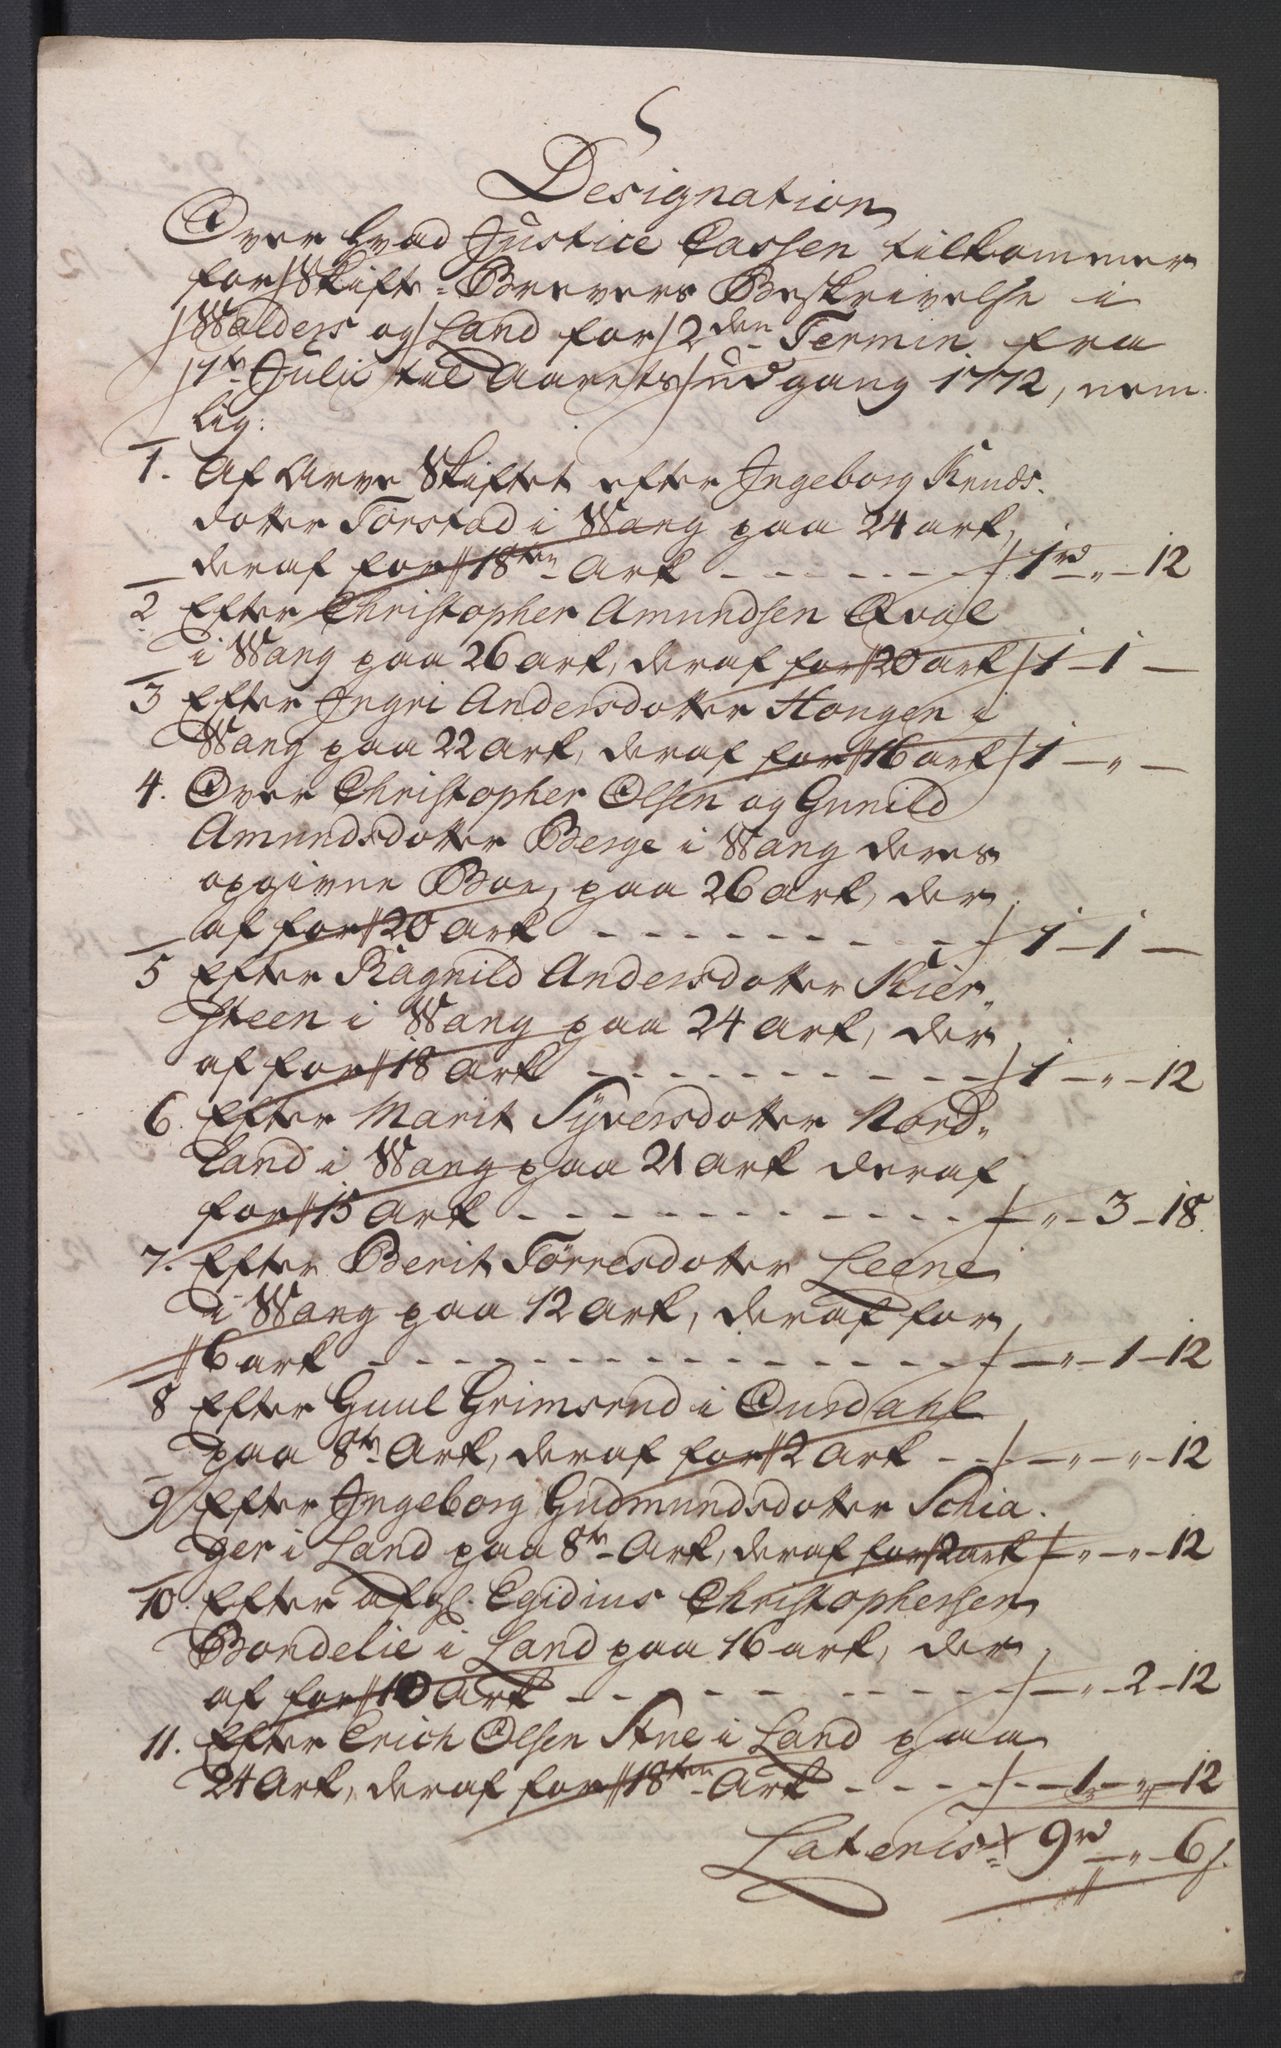 Designation
Over hvad Justice Cassen tilkommer
for Skifte-Brevers Beskrivelse i
Walders og Land for 2den Termin fra
1te Julii til Aarets udgang 1772, nem-
lig:
1. Af Arve Skiftet efter Ingeborg Knuds-
dotter Torstad i Wang paa 24 ark,
deraf for 18ten Ark - - - - - 1rd - „ - 12
2 Efter Christopher Amundsen Qvale
i Wang paa 26 ark, deraf for 20 ark 1 - 1 -
3 Efter Ingri Andersdotter Hougen i
Wang paa 22 Ark, deraf for 16 ark 1 - „ -
4. Over Christopher Olsen og Gunild
Amundsdotter Berge i Wang deres
opgivne Boe, paa 26 ark, der
af for 20 Ark - - - - - 1 - 1 -
5 Efter Ragnild Andersdotter Kier-
steen i Wang paa 24 Ark, der
af for 18 Ark - - - - - 1 - „ - 12
6 Efter Marit Syversdotter Nord-
land i Wang paa 21 Ark deraf
for 15 Ark - - - - - „ - 3 - 18
7. Efter Berit Torresdotter Leene
i Wang paa 12 Ark, deraf for
6 ark - - - - - „ - 1 - 12
8 Efter Guul Grimsrud i Ourdahl
paa 8te Ark, deraf for 2 Ark - - „ - „ - 12
9 Efter Ingeborg Gudmundsdotter Schia-
ger i Land paa 8te Ark, deraf for 2 ark „ - „ - 12
10. Efter afgl. Egidius Christophersen
Bondelie i Land paa 16 ark, der
af for 10 Ark - - - - - „ - 2 - 12
11. Efter Erich Olsen i Land paa
24 Ark, deraf for 18ten Ark - - - - 1 - „ - 12
Lateris 9rd - „ - 6s.